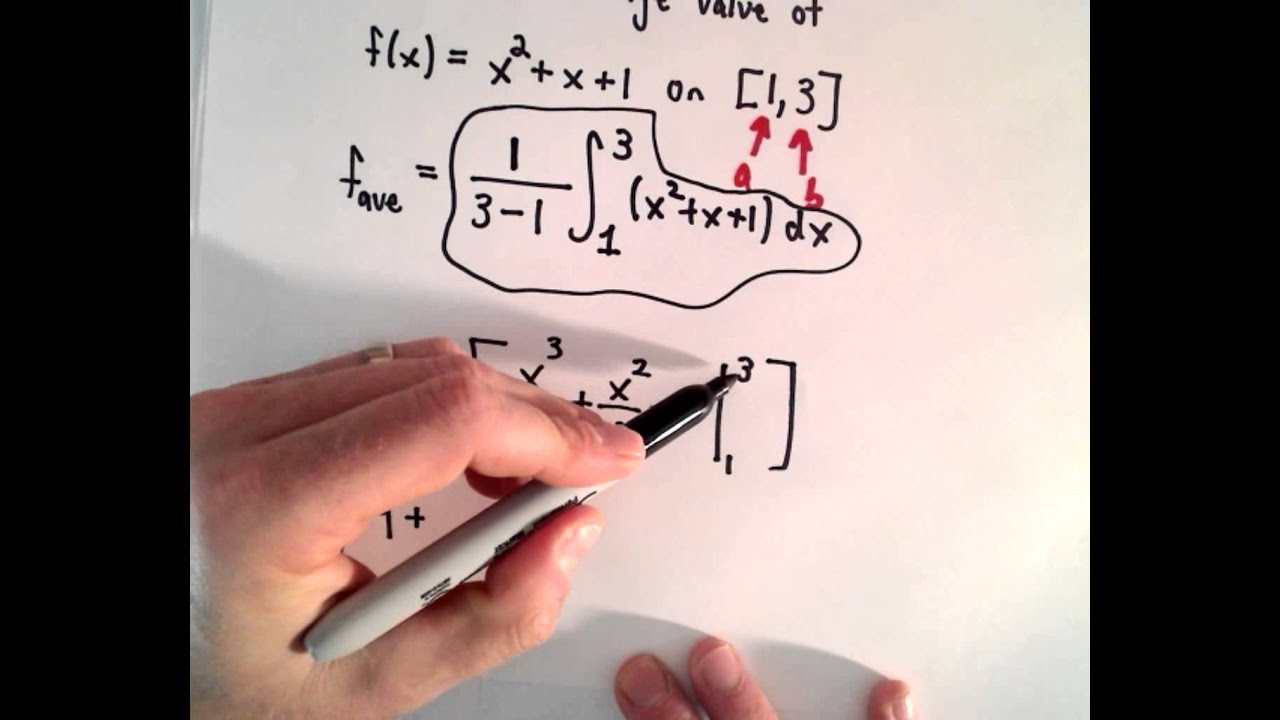 value of
f(x) = x² + x + 1 on [1, 3]
a b
f_ave = 1/(3-1) ∫₁³ (x² + x + 1) dx
[ x³ + x² |₁³ ]
1 +